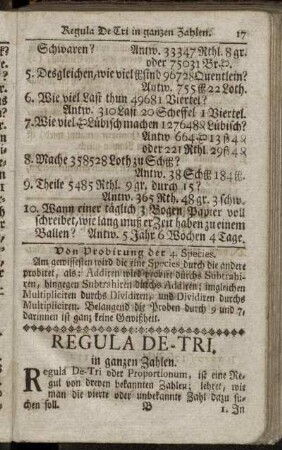 Regula De Tri in ganzen Zahlen. 17
Schwaren? Antw. 33347 Rthl. 8 gr.
oder 75031 Br.
5. Desgleichen, wie viel sind 96728 Quentlein?
Antw. 755 22 Loth.
6. Wie viel Last thun 49681 Viertel?
Antw. 310 Last 20 Scheffel 1 Viertel.
7. Wie viel Lübisch machen 127648 Lübisch?
Antw. 664 13 ß 4
oder 221 Rthl. 29 ß 4
8. Mache 358528 Loth zu Sch
Antw. 38 Sch 184
9. Theile 5485 Rthl. 9 gr. durch 15?
Antw. 365 Rth. 48 gr. 3 schw.
10. Wann einer täglich 3 Bogen Papier voll
schreibet, wie lang muß er Zeit haben zu einem
Ballen? Antw. 5 Jahr 6 Wochen 4 Tage.
Von Probirung der 4. Species.
Am gewissesten wird die eine Species durch die andere
probiret, als: Addiren wird probirt durchs Subtrahi-
ren, hingegen Subtrahiren durchs Addiren; imgleichen
Multipliciren durchs Dividiren, und Dividiren durchs
Multipliciren. Belangend die Proben durch 9 und 7,
darinnen ist ganz keine Gewißheit.
REGULA DE-TRI.
in ganzen Zahlen.
Regula De-Tri oder Proportionum, ist eine Re-
gul von dreyen bekannten Zahlen; lehret, wie
man die vierte oder unbekannte Zahl dazu su-
chen soll. B 1. In